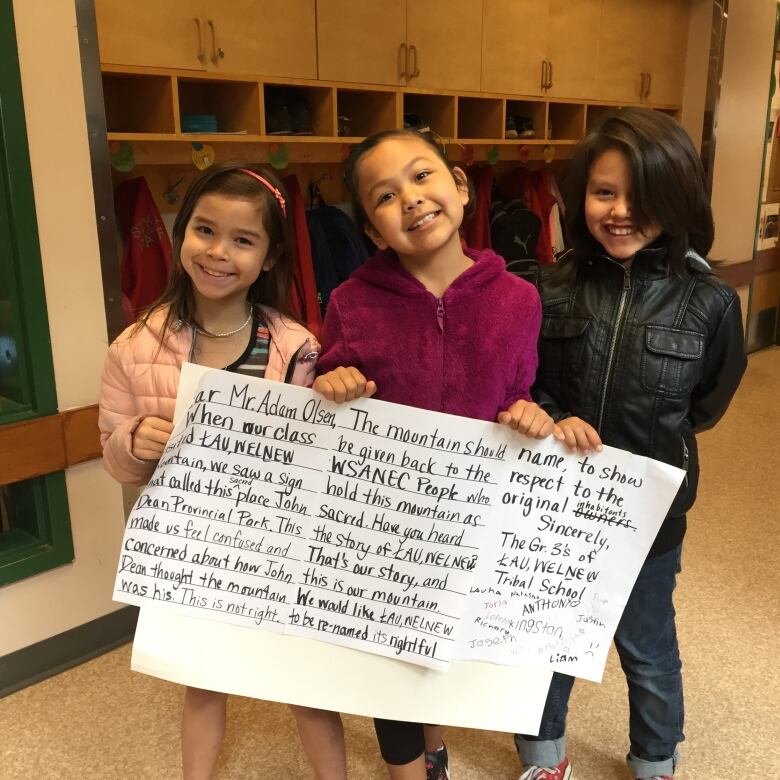 ar Mr. Adam Olsen,
When our class
d ŁAU, WELNEW
ountain, we saw a sign
at called this sacred place John
Dean Provincial Park. This
made us feel confused and
concerned about how John
Dean thought the mountain
was his. This is not right.
The mountain should
be given back to the
WSANEC People who
hold this mountain as
sacred. Have you heard
the story of ŁAU, WELNEW?
That's our story, and
this is our mountain.
We would like ŁAU, WELNEW
to be re-named its rightful
name, to show
respect to the
original inhabitants
owners.
Sincerely,
The Gr. 3's of
ŁAU, WELNEW
Tribal School
Natasha
ANTHONY
Kingston
Justin
Joseph
Liam